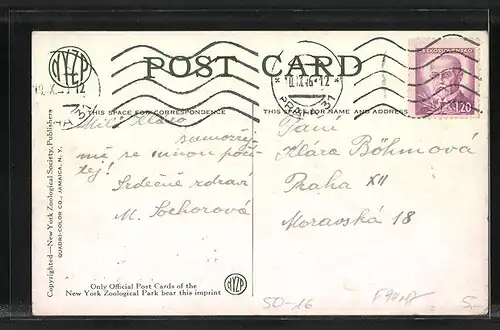 NYZP
POST CARD
ČESKOSLOVENSKO
1.20
THIS SPACE FOR CORRESPONDENCE
THIS SPACE FOR NAME AND ADDRESS
Milá Kláro
samozřej-
mě se mnou počí-
tej!
Srdečně zdraví
M. Sochorová
Paní
Klára Böhmová
Praha XII
Moravská 18
Copyrighted—New York Zoological Society, Publishers
QUADRI-COLOR CO., JAMAICA, N. Y.
Only Official Post Cards of the
New York Zoological Park bear this imprint
NYZP
50-16